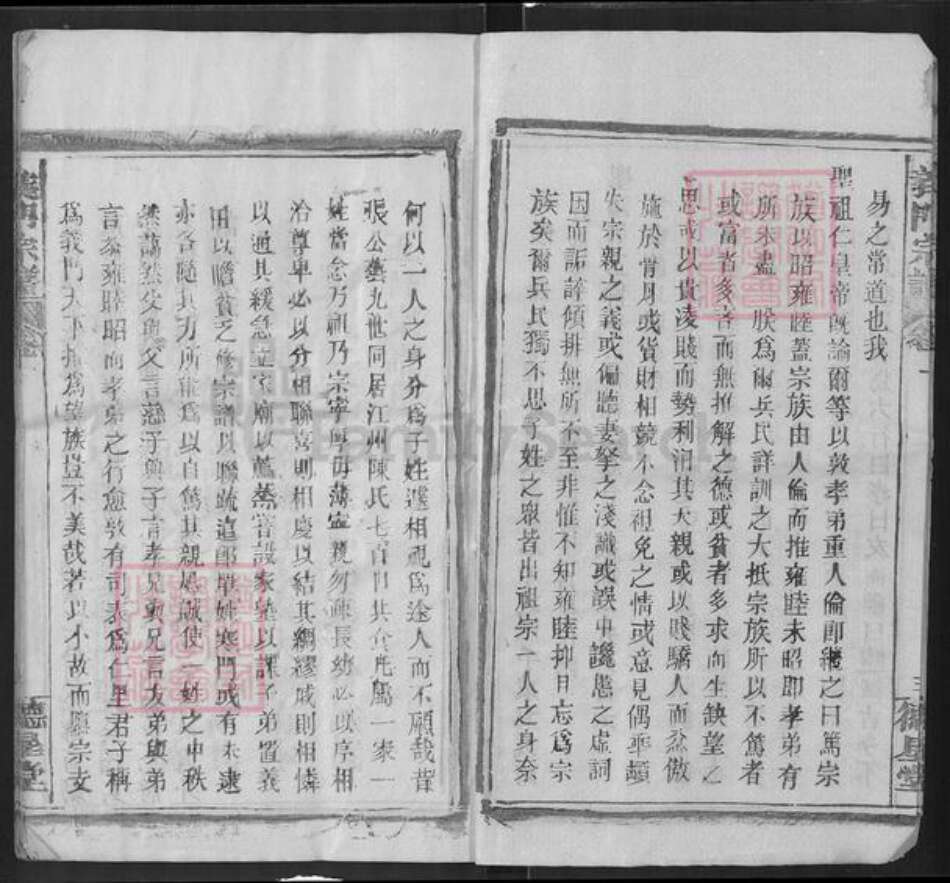 易之常道也我
聖祖仁皇帝既諭爾等以敦孝弟重人倫即繼之曰篤宗
族以昭雍睦蓋宗族由人倫而推雍睦未昭即孝弟有
所未盡 朕為爾兵民詳訓之大抵宗族所以不篤者
或富者多吝而無推解之德或貧者多求而生缺望之
思或以貴凌賤而勢利汨其天親或以賤驕人而忿傲
施於骨月或貨財相競不念袒免之情或意見偶乖頓
失宗親之義或偏聽妻孥之淺識或誤中讒慝之虛詞
因而詬誶傾排無所不至非惟不知雍睦抑且忘為宗
族矣爾兵民獨不思子姓之眾皆出祖宗一人之身奈
何以一人之身分為子姓遽相視為途人而不顧哉昔
張公藝九世同居江州陳氏七百口共食凡屬一家一
姓當念乃祖乃宗寧厚毋薄寧親勿疎長幼必以序相
洽尊卑必以分相聯喜則相慶以結其綢繆戚則相憐
以通其緩急立家廟以薦蒸嘗設家塾以課子弟置義
田以贍貧乏修宗譜以聯疏遠即單姓寒門或有未逮
亦各隨其力所能為以自篤其親屬誠使一姓之中秩
然藹然父與父言慈子與子言孝兄與兄言友弟與弟
言恭雍睦昭而孝弟之行愈敦有司表為仁里君子稱
為義門天下推為望族豈不美哉若以小故而隳宗支
義門宗譜
卷一
德星堂
FamilySearch